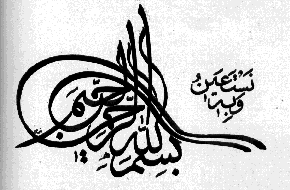 بسم الله الرحمن الرحيم
وبه نستعين